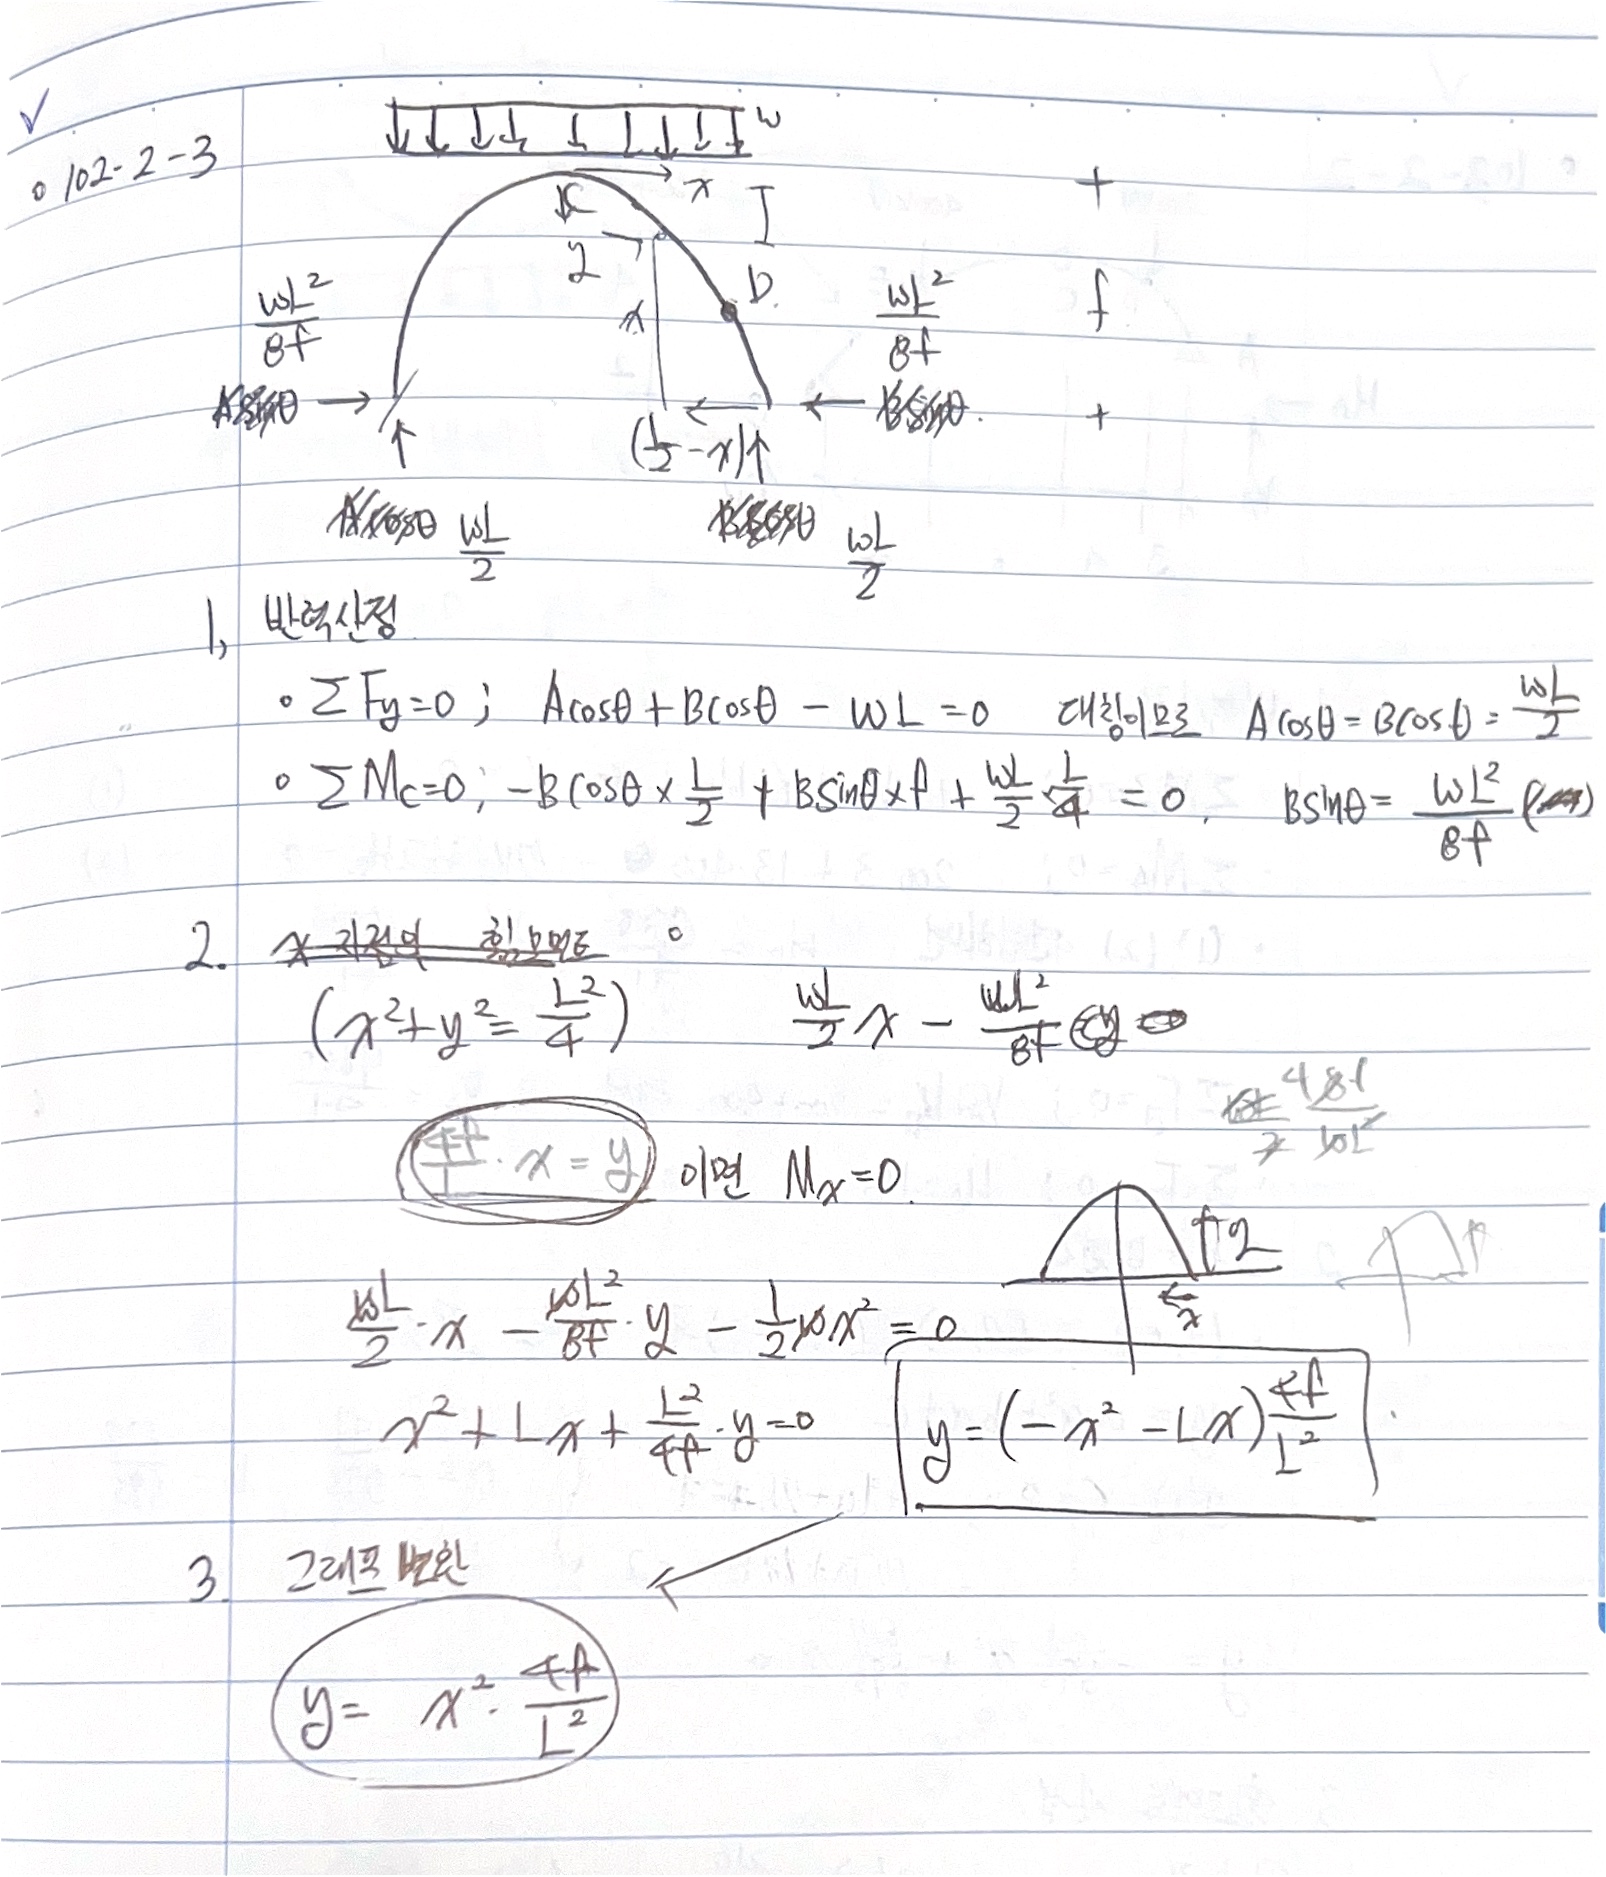 102-2-3
w
x
C
y
D
x
wL²/8f
wL²/8f
f
(L/2-x)
wL/2
wL/2
1, 반력산정
∑Fy=0; Acosθ+Bcosθ-wL=0 대칭이므로 Acosθ=Bcosθ=wL/2
∑Mc=0; -Bcosθ×L/2+Bsinθ×f+wL/2×L/4=0, Bsinθ=wL²/8f
2. x 지점의 휨모멘트
(x²+y²=L²/4) wL/2 x - wL²/8f y
4f/L·x=y 이면 Mx=0.
y
x
wL/2·x-wL²/8f·y-1/2wx²=0
x²+Lx+L²/4f·y=0 y=(-x²-Lx)4f/L²
3. 그래프 변환
y= x²·4f/L²